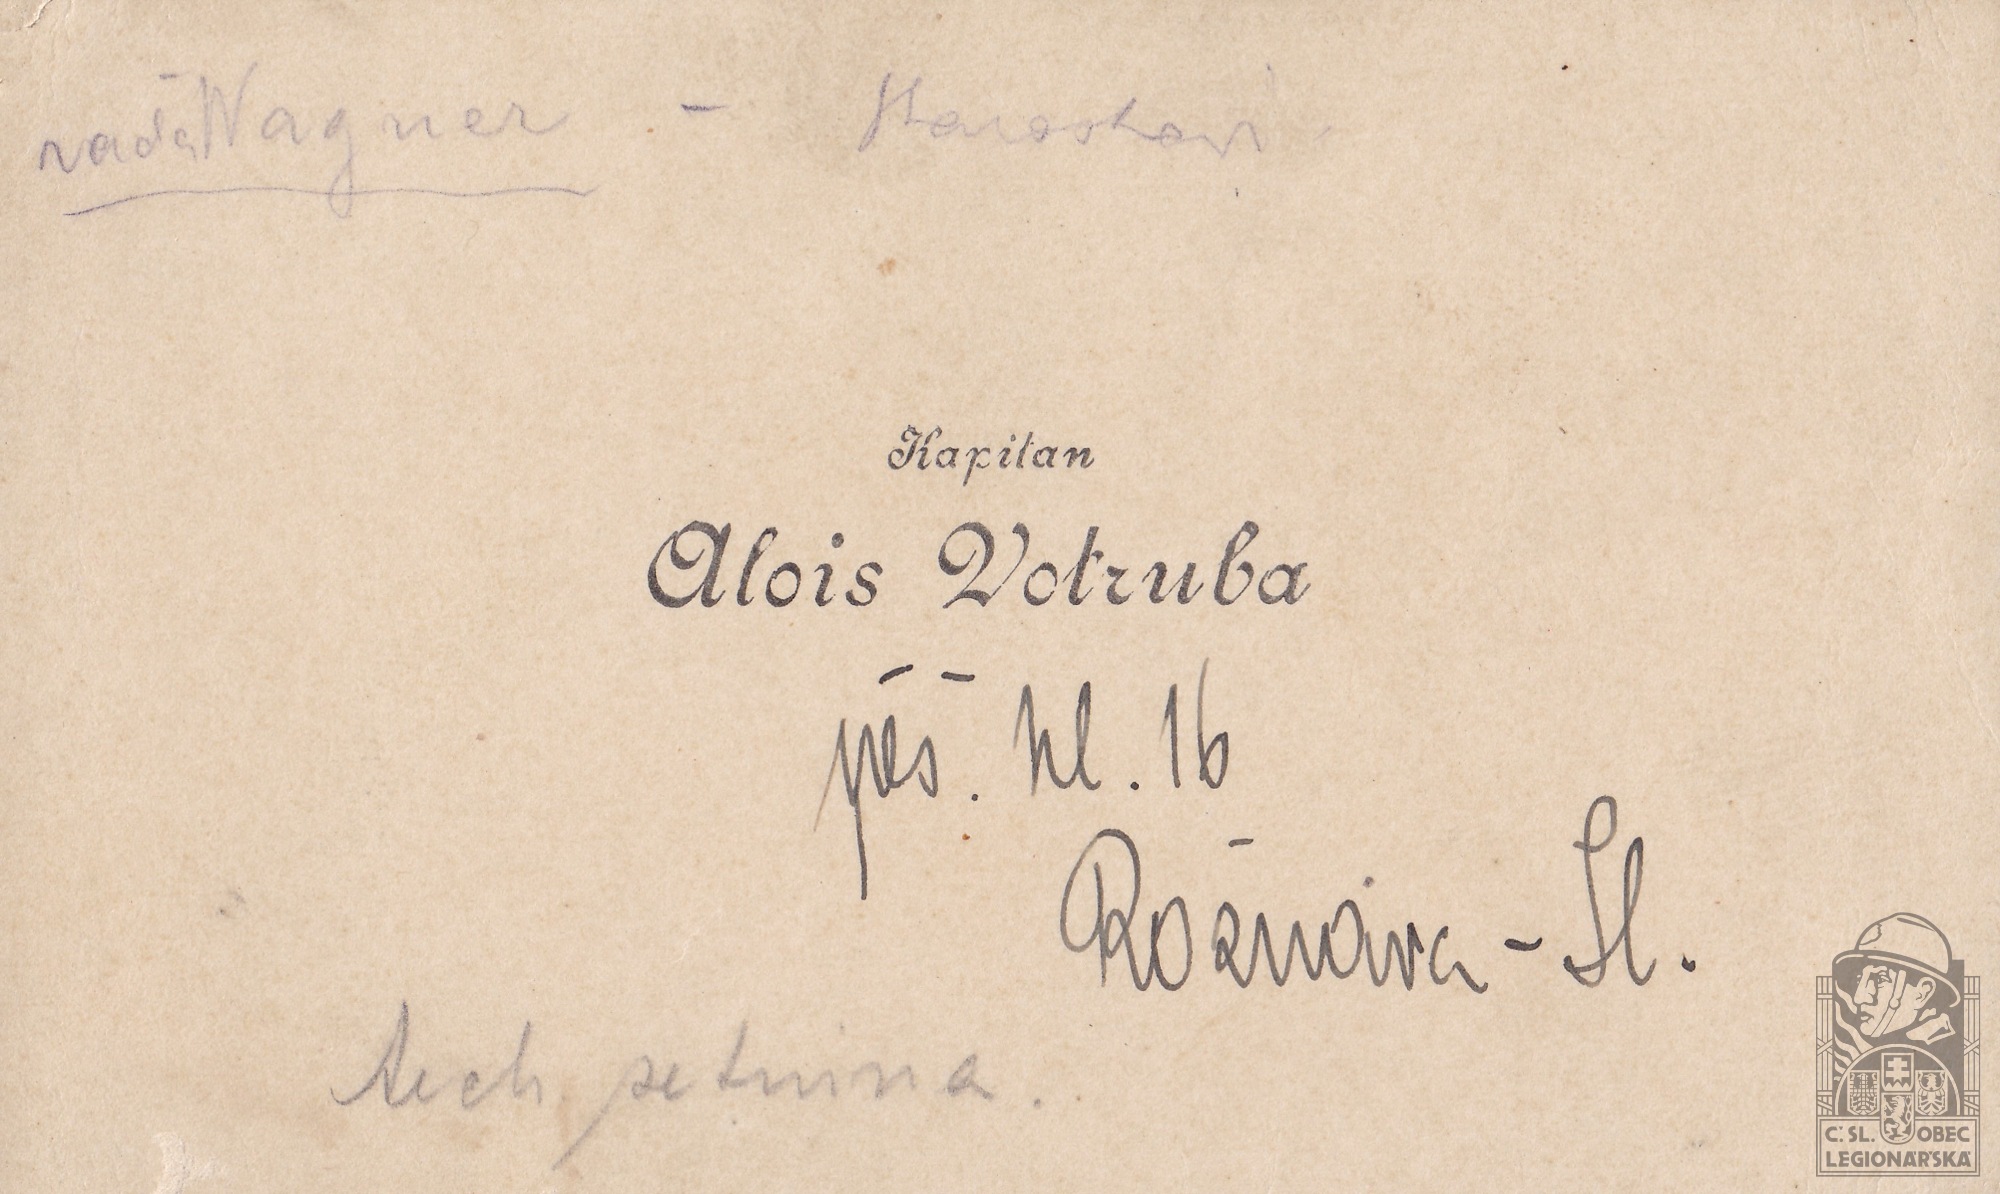 rada Wagner -
Kapitan
Alois Votruba
pěš. pl. 16
Rožňava - Sl.
tech setnina.
Č. SL. OBEC
LEGIONÁŘSKÁ